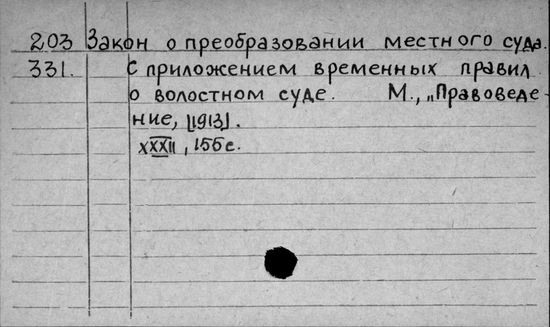 203 Закон о преобразовании местного суда.
331. С приложением временных правил
о волостном суде. М., „Правоведе-
ние, [1913].
XXXII, 155 с.